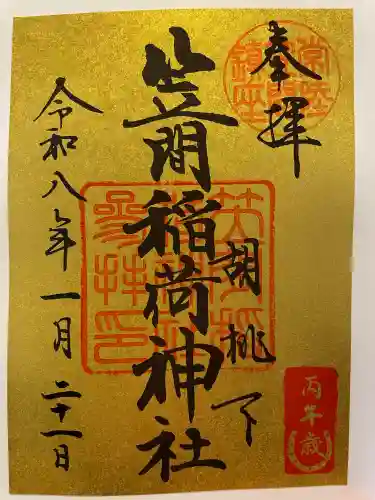 奉拝
笠間稲荷神社
胡桃下
令和八年一月二十一日
丙午歳